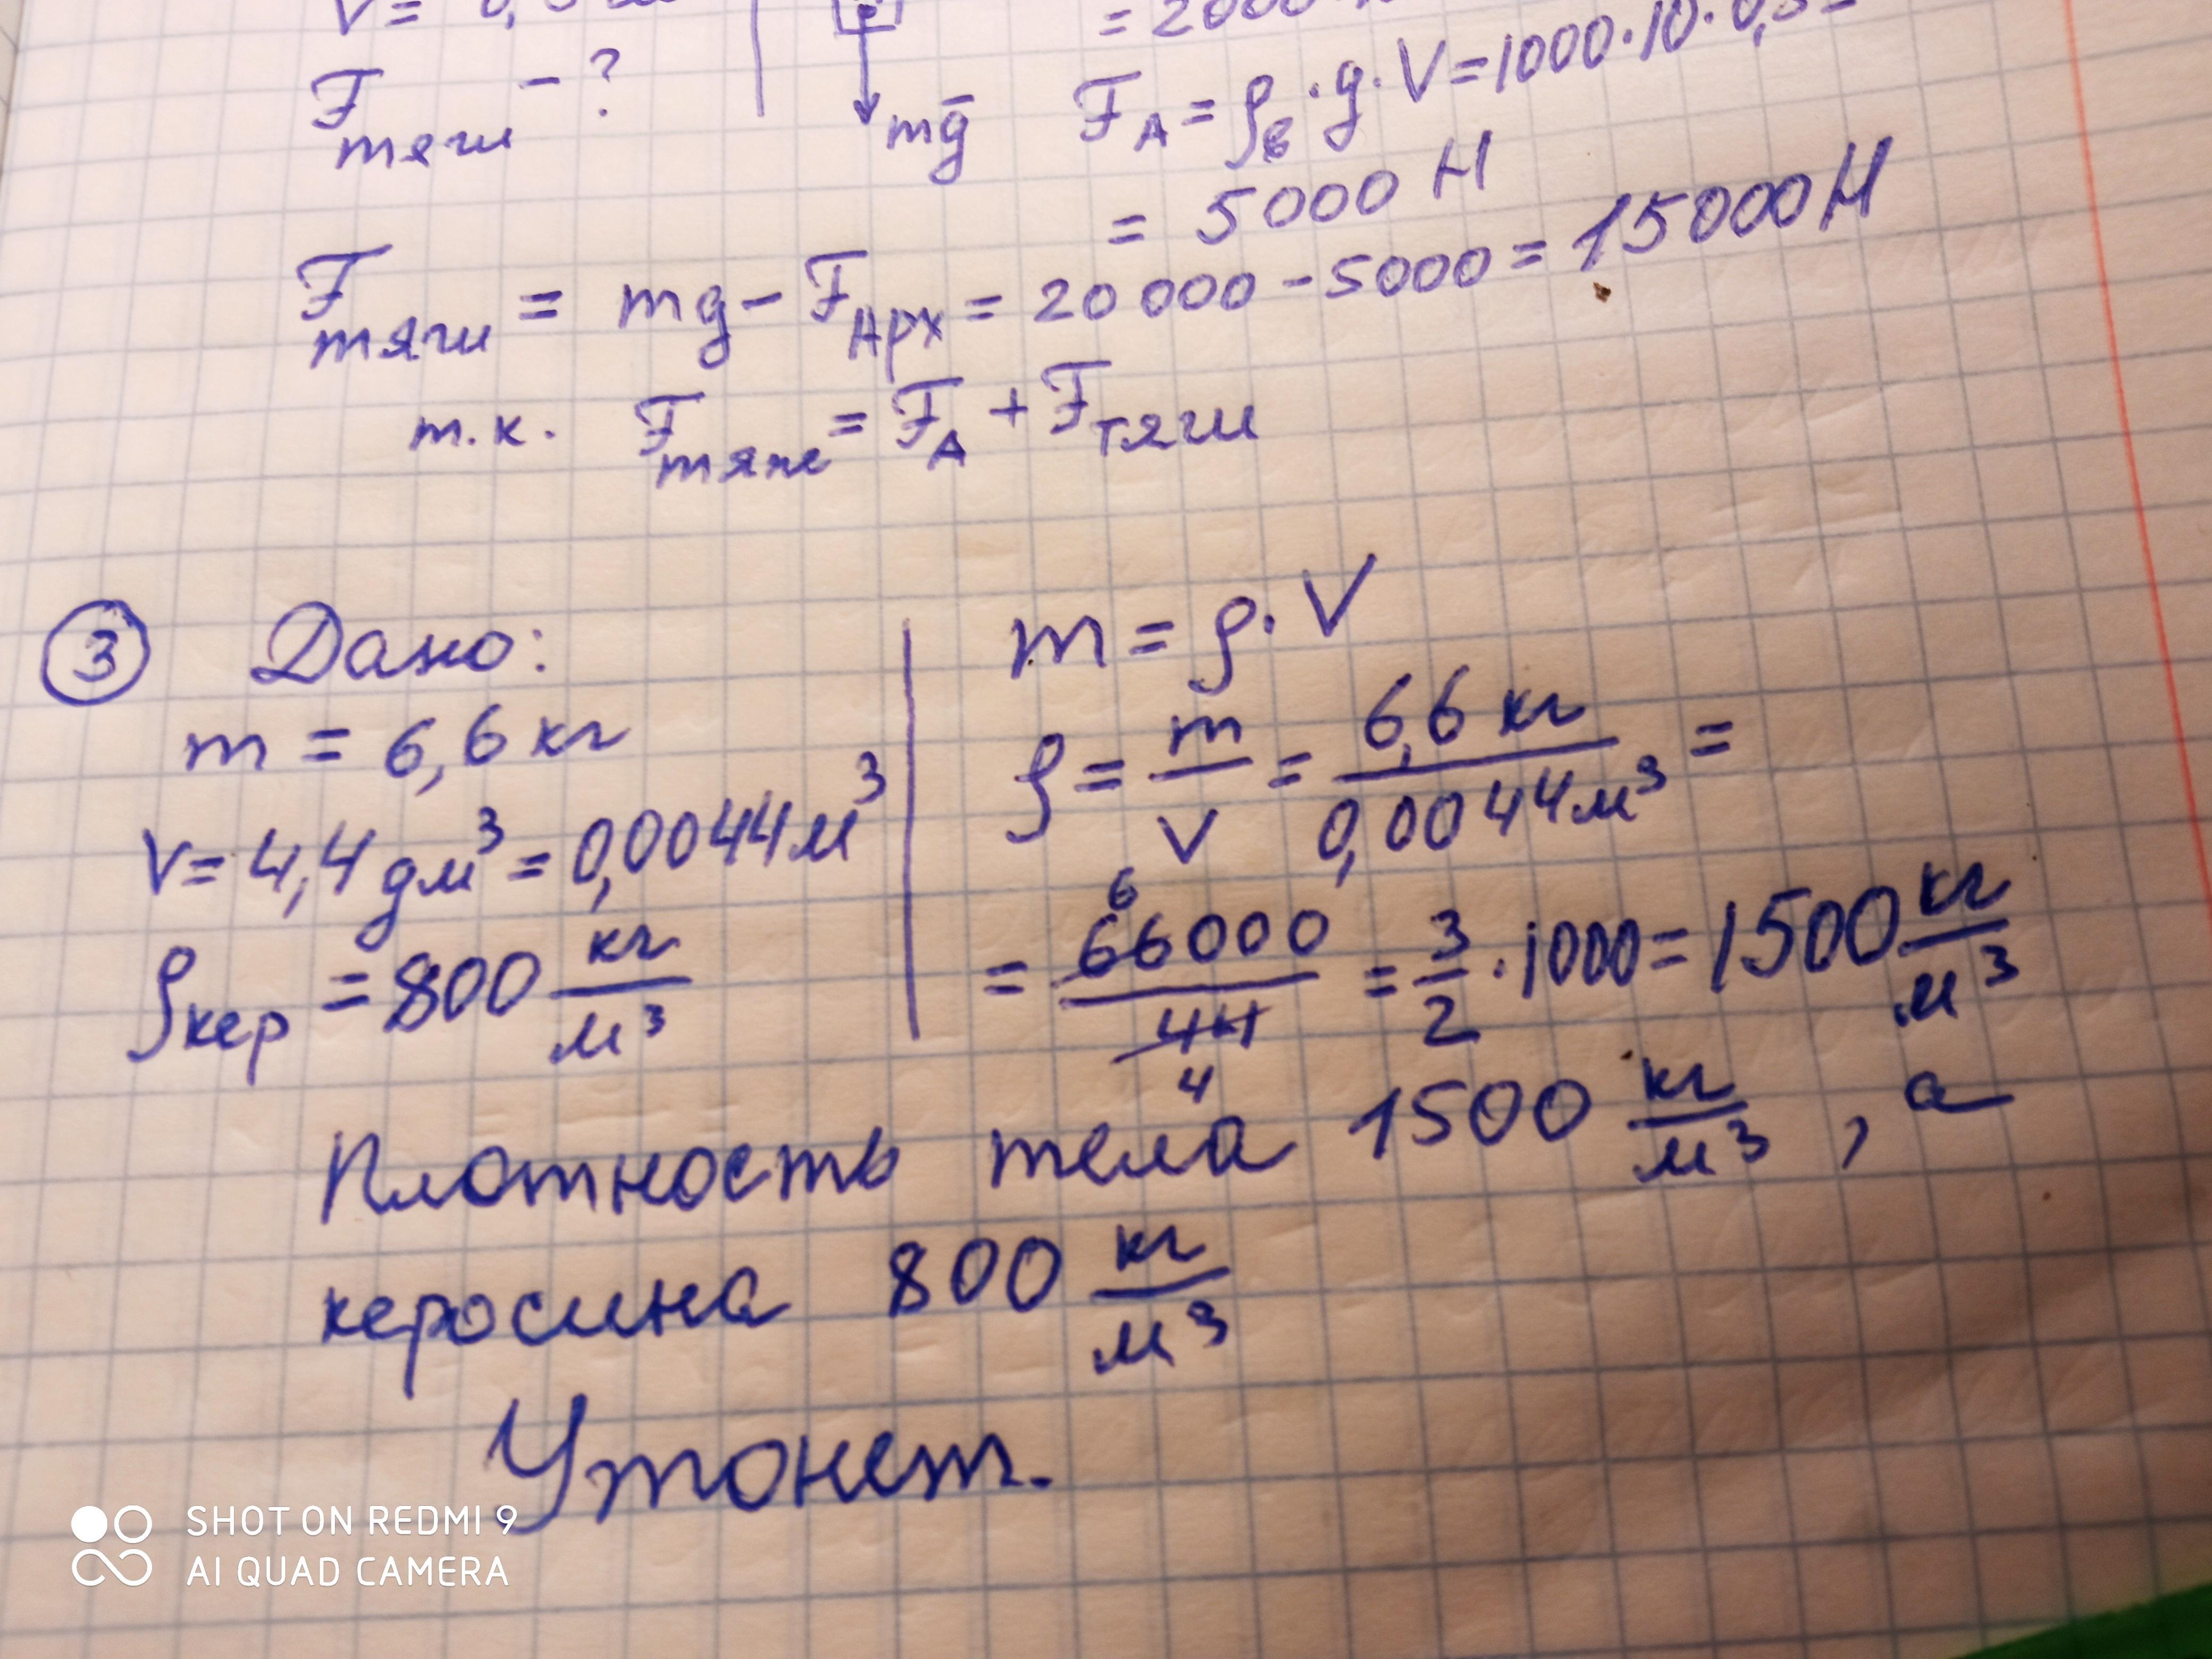 V = 0,5
= 2000
F тяги - ?
mg
F A = ρв · g · V = 1000 · 10 · 0,5 =
= 5000 Н
F тяги = mg - F Арх = 20 000 - 5000 = 15000 Н
т.к. F тяже = F A + F тяги
3 Дано:
m = 6,6 кг
V = 4,4 дм³ = 0,0044 м³
ρкер = 800 кг/м³
m = ρ · V
ρ = m/V = 6,6 кг/0,0044 м³ =
= 66000/44 = 3/2 · 1000 = 1500 кг/м³
6
4
Плотность тела 1500 кг/м³, а
керосина 800 кг/м³
Утонет.
SHOT ON REDMI 9
AI QUAD CAMERA